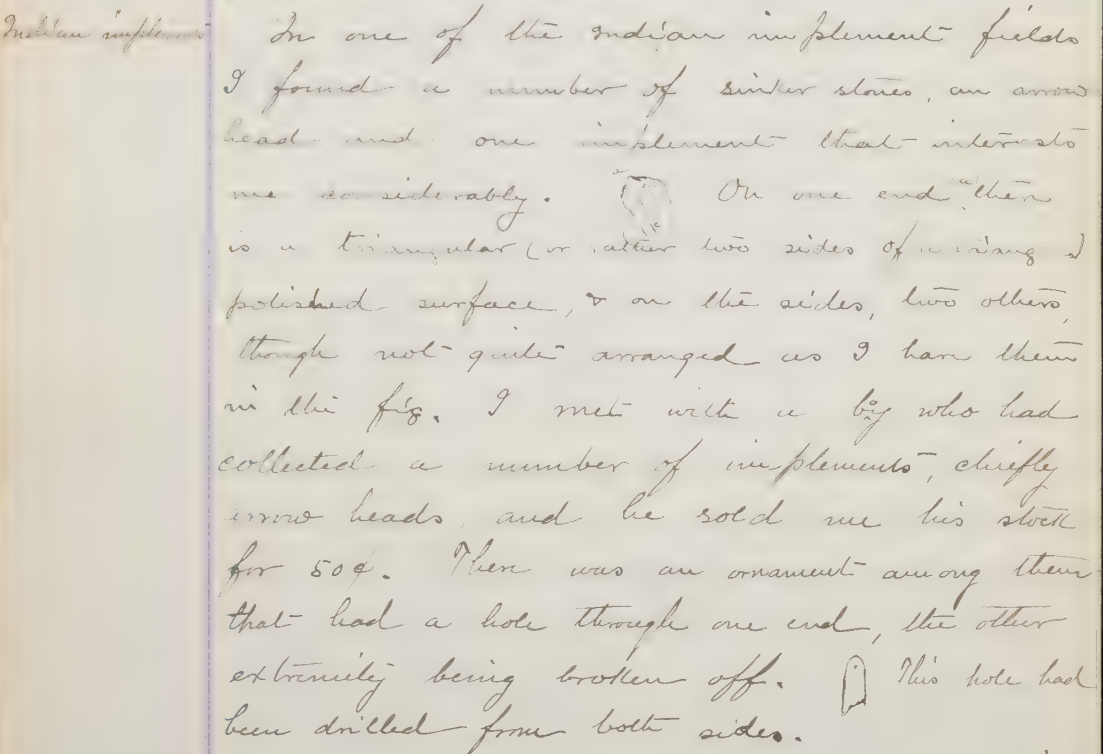 Indian implements
In one of the Indian implement fields
I found a number of sinker stones, an arrow
head and one implement that interests
me considerably. On one end "a" there
is a triangular (or rather two sides of a triangle)
polished surface, & on the sides, two others,
though not quite arranged as I have them
in the fig. I met with a boy who had
collected a number of implements, chiefly
arrow heads, and he sold me his stock
for 50¢. There was an ornament among them
that had a hole through one end, the other
extremity being broken off. This hole had
been drilled from both sides.